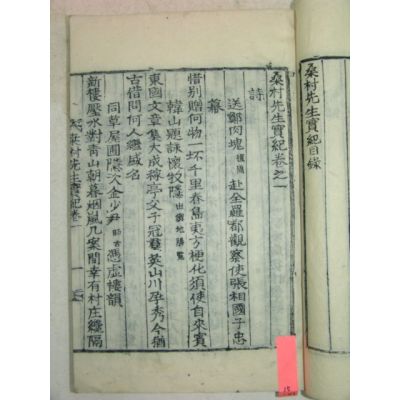 桑村先生實紀目錄
桑村先生實紀卷之一
詩
送鄭肉塊 復隱 赴全羅都觀察使張相國子忠
幕
惜别贈何物一坏千里春島夷方梗化須使自來賓
韓山題詠懷牧隱 出勝地勝覽
東國文章集大成稼亭父子冠羣英山川孕秀今猶
古借問何人繼盛名
同草屋圃隱次金少尹 師古 憑虛樓韻
新樓壓水對靑山朝暮烟嵐几案間幸有村庄纔隔
桑村先生實紀卷一
15